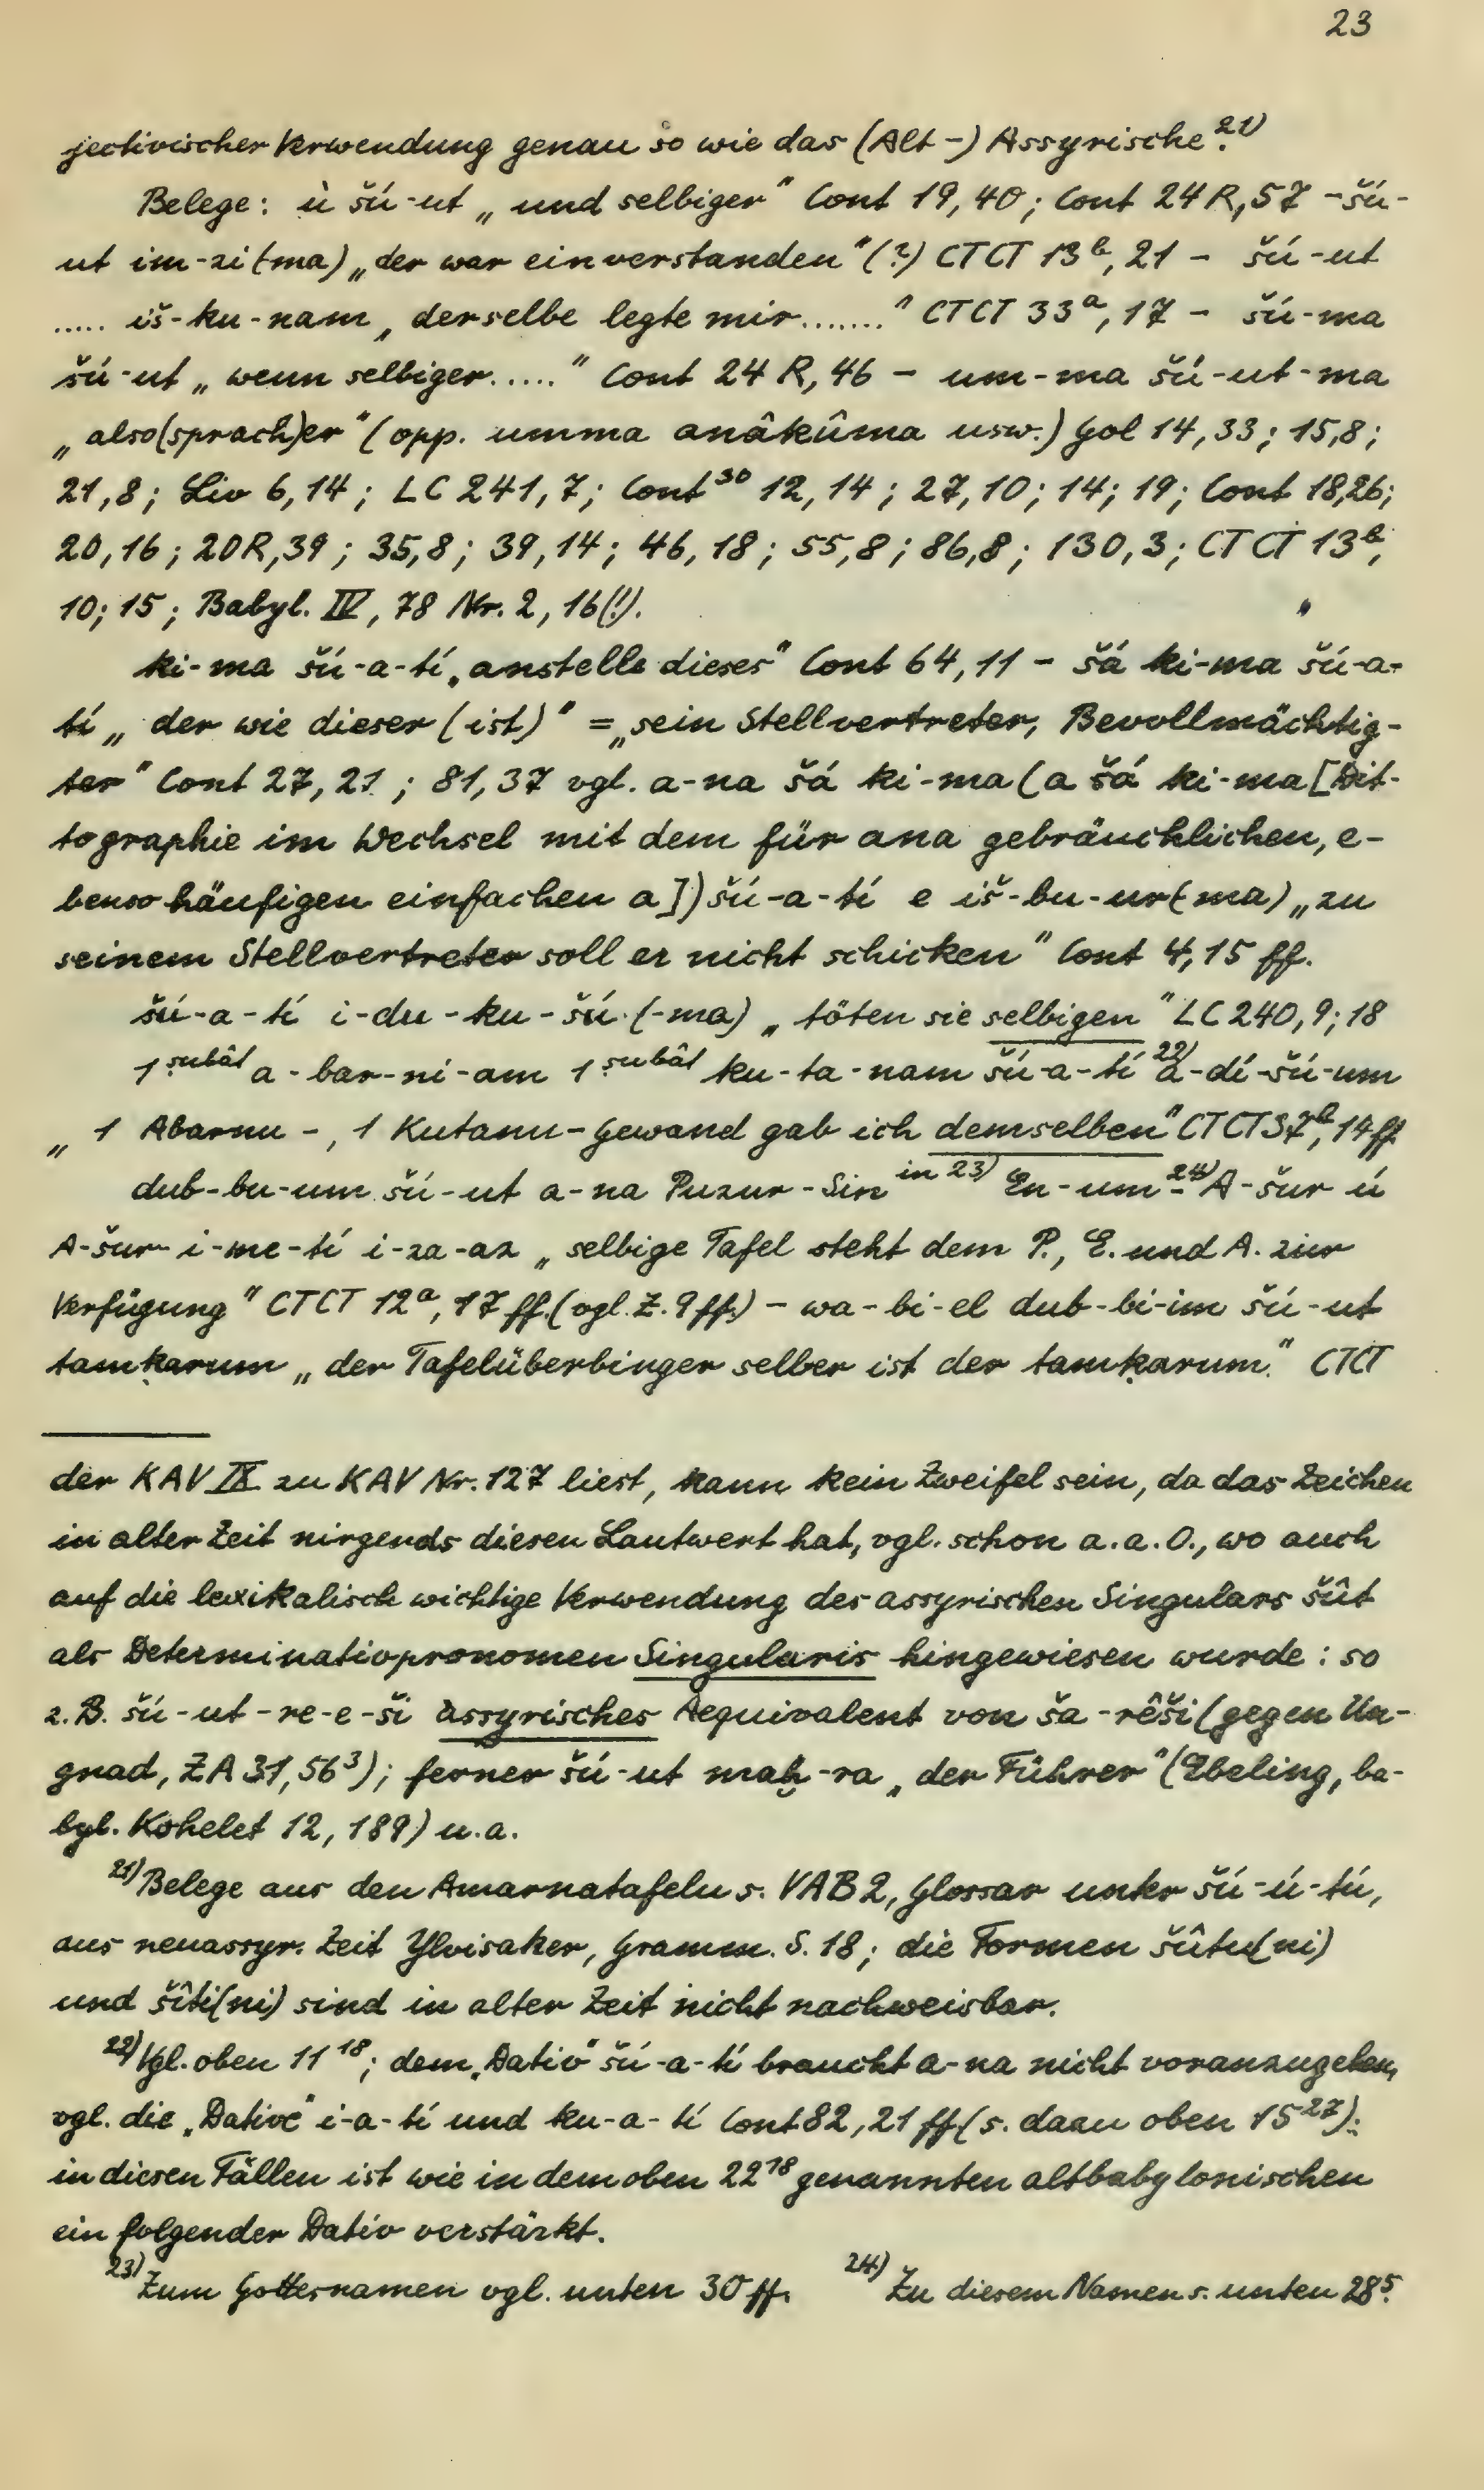 23
jectivischer Verwendung genau so wie das (Alt-) Assyrische.²¹⁾
Belege: ù šú-ut „und selbiger" Cont 19,40; Cont 24R,57 - šú-
ut im-zi(-ma) „der war einverstanden"(?) CTCT 13ᵇ, 21 - šú-ut
..... iš-ku-nam „derselbe legte mir......." CTCT 33ᵃ, 17 - šú-ma
šú-ut „wenn selbiger....." Cont 24 R, 46 - um-ma šú-ut-ma
„also(sprach)er" (opp. umma anâkûma usw.) Gol 14,33; 15,8;
21,8; Liv 6,14; LC 241,7; Cont³⁰ 12,14; 27,10; 14; 19; Cont 18,26;
20,16; 20R,39; 35,8; 39,14; 46,18; 55,8; 86,8; 130,3; CTCT 13ᵇ,
10; 15; Babyl. IV, 78 Nr. 2, 16(!).
ki-ma šú-a-tí „anstelle dieses" Cont 64,11 - šá ki-ma šú-a-
tí „der wie dieser (ist)" = „sein Stellvertreter, Bevollmächtig-
ter" Cont 27,21; 81,37 vgl. a-na šá ki-ma (a šá ki-ma [Dit-
tographie im Wechsel mit dem für ana gebräuchlichen, e-
benso häufigen einfachen a]) šú-a-tí e iš-bu-ur(-ma) „zu
seinem Stellvertreter soll er nicht schicken" Cont 4,15 ff.
šú-a-tí i-du-ku-šú (-ma) „töten sie selbigen" LC 240,9; 18
1 ṣubât a-bar-ni-am 1 ṣubât ku-ta-nam šú-a-tí ²²⁾ a-dí-šú-um
„1 Abarnu-, 1 Kutanu-Gewand gab ich demselben" CTCT 37ᵇ, 14 ff
dub-bu-um šú-ut a-na Puzur-Sin ⁱⁿ ²³⁾ En-um-²⁴⁾A-šur ú
A-šur-i-me-tí i-za-az „selbige Tafel steht dem P., E. und A. zur
Verfügung" CTCT 12ᵃ, 17 ff. (vgl. Z. 9 ff.) - wa-bi-el dub-bi-im šú-ut
tamḳarum „der Tafelüberbinger selber ist der tamḳarum." CTCT
der KAV IX zu KAV Nr. 127 liest, kann kein Zweifel sein, da das Zeichen
in alter Zeit nirgends diesen Lautwert hat, vgl. schon a.a.O., wo auch
auf die lexikalisch wichtige Verwendung des assyrischen Singulars šût
als Determinativpronomen Singularis hingewiesen wurde: so
z.B. šú-ut-re-e-ši assyrisches Aequivalent von ša-rêši (gegen Un-
gnad, ZA 31, 56³); ferner šú-ut maḫ-ra „der Führer" (Ebeling, ba-
byl. Kohelet 12, 189) u.a.
²¹⁾ Belege aus den Amarnatafeln s. VAB 2, Glossar unter šú-ú-tú,
aus neuassyr. Zeit Ylvisaker, Gramm. S. 18; die Formen šûtu(ni)
und šîti(ni) sind in alter Zeit nicht nachweisbar.
²²⁾ Vgl. oben 11¹⁸; dem „Dativ" šú-a-tí braucht a-na nicht voranzugehen,
vgl. die „Dative" i-a-tí und ku-a-tí Cont 82, 21 ff (s. dazu oben 15²⁷);
in diesen Fällen ist wie in dem oben 22¹⁸ genannten altbabylonischen
ein folgender Dativ verstärkt.
²³⁾ Zum Gottesnamen vgl. unten 30 ff. ²⁴⁾ Zu diesem Namen s. unten 28⁵.